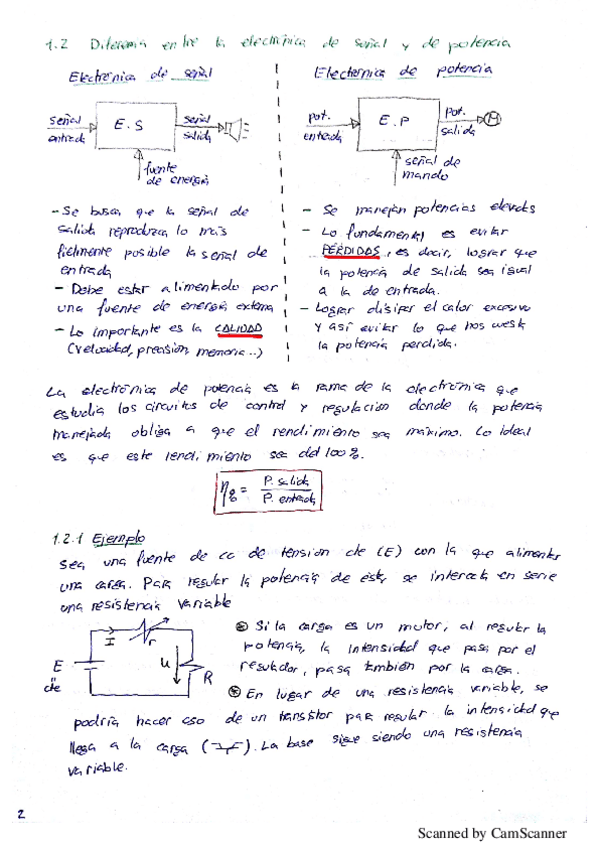 1.2 Diferencia entre la electrónica de señal y de potencia
Electrónica de señal
señal
entrada
E.S
señal
salida
fuente
de energía
- Se busca que la señal de
salida reproduzca lo más
fielmente posible la señal de
entrada
- Debe estar alimentado por
una fuente de energía externa
- Lo importante es la CALIDAD
(velocidad, precisión, memoria...)
Electrónica de potencia
pot.
entrada
E.P
pot.
salida
M
señal de
mando
- Se manejan potencias elevadas
- Lo fundamental es evitar
PÉRDIDAS, es decir, lograr que
la potencia de salida sea igual
a la de entrada.
- Lograr disipar el calor excesivo
y así evitar lo que nos cuesta
la potencia perdida.
La electrónica de potencia es la rama de la electrónica que
estudia los circuitos de control y regulación donde la potencia
manejada obliga a que el rendimiento sea máximo. Lo ideal
es que este rendimiento sea del 100%.
η% = P. salida / P. entrada
1.2.1 Ejemplo
Sea una fuente de cc de tensión cte (E) con la que alimentar
una carga. Para regular la potencia de ésta, se intercala en serie
una resistencia variable
I
r
E
=
cte
U
R
⊛ Si la carga es un motor, al regular la
potencia, la intensidad que pasa por el
regulador, pasa también por la carga.
⊛ En lugar de una resistencia variable, se
podría hacer uso de un transistor para regular la intensidad que
llega a la carga ( ). La base sigue siendo una resistencia
variable.
2
Scanned by CamScanner